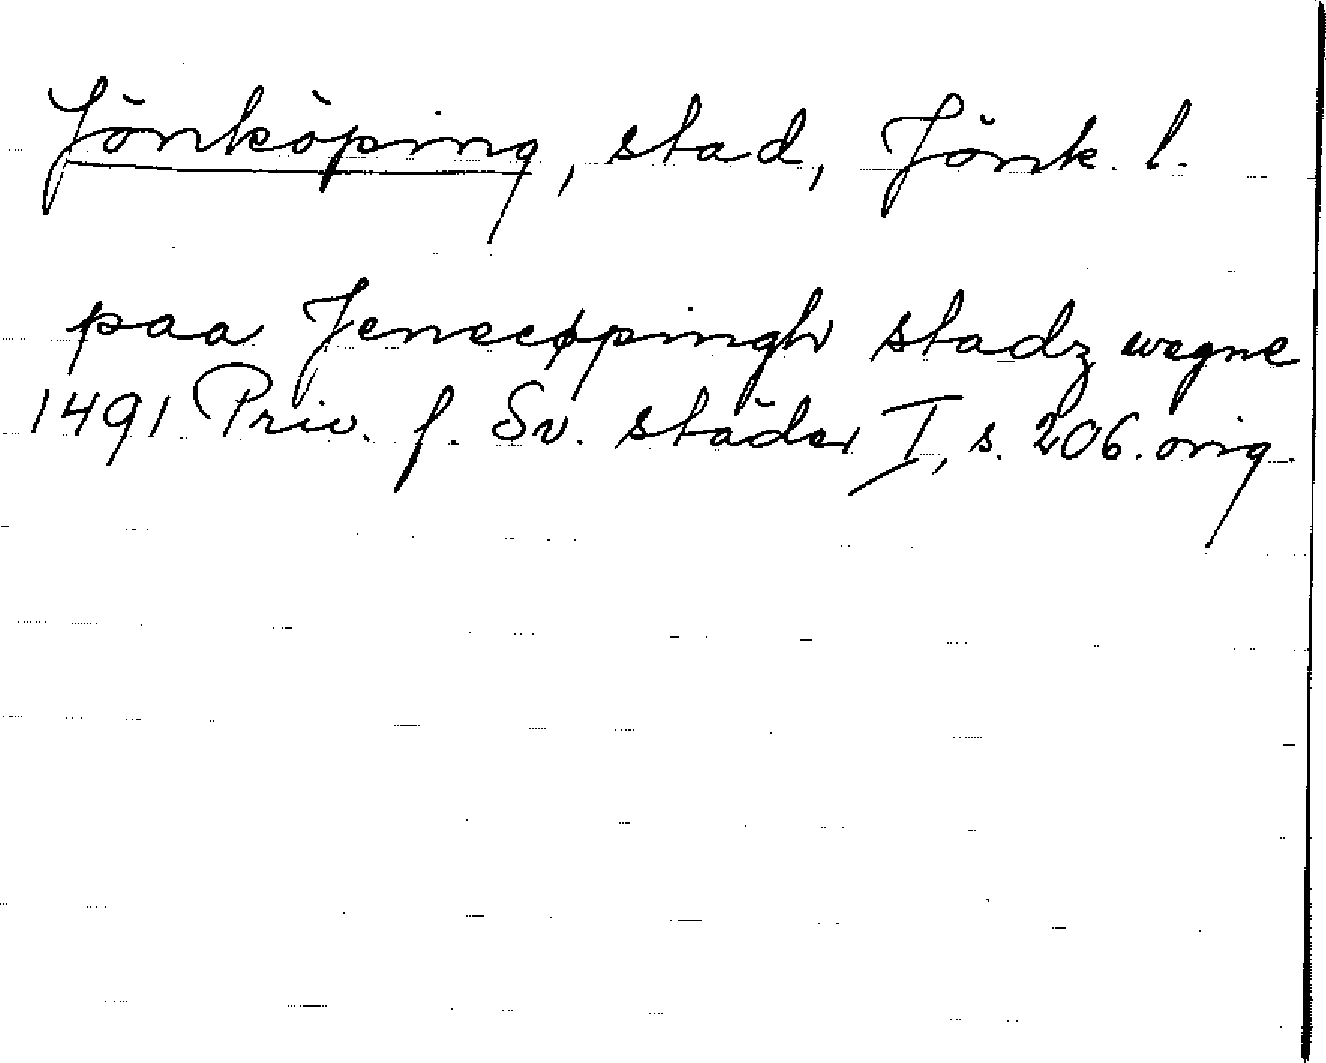 Jönköping, stad, Jönk. l.
paa Jenecøpingh stadz wegne
1491 Priv. f. Sv. städer I, s. 206. orig